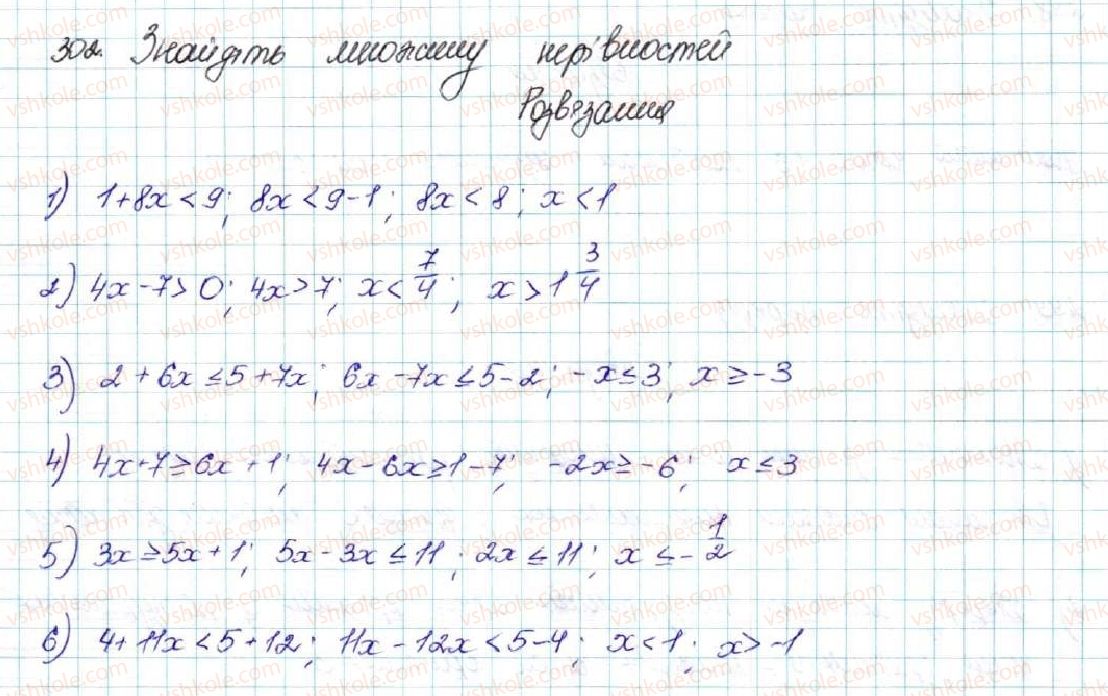 302. Знайдіть множину нерівностей
Розв'язання
1) 1+8x<9; 8x<9-1; 8x<8; x<1
2) 4x-7>0; 4x>7; x<7/4; x>1 3/4
3) 2+6x≤5+7x; 6x-7x≤5-2; -x≤3; x≥-3
4) 4x+7≥6x+1; 4x-6x≥1-7; -2x≥-6; x≤3
5) 3x≥5x+1; 5x-3x≤11; 2x≤11; x≤-1/2
6) 4+11x<5+12; 11x-12x<5-4; x<1; x>-1